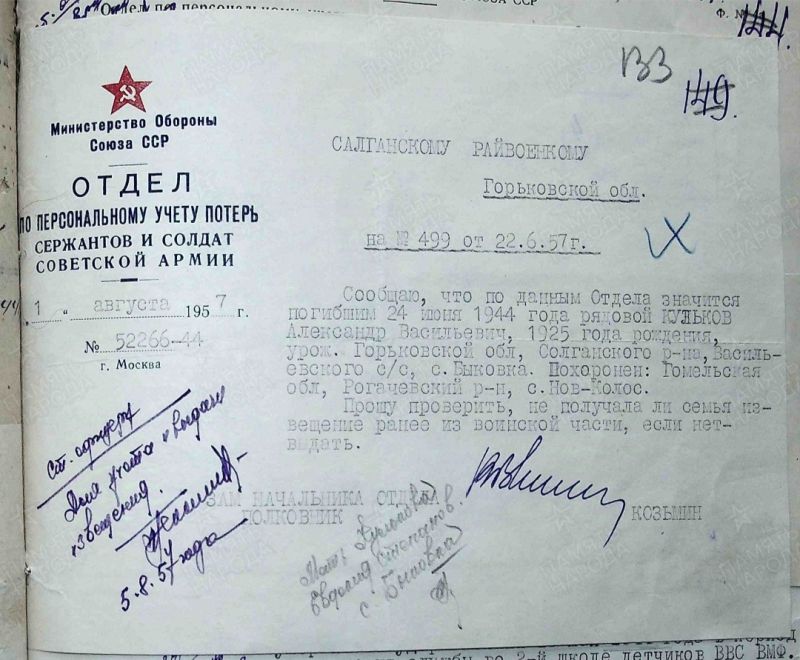 Отдел по персональному
СОЮЗА ССР
Ф. №
144.
ВЗ
149.
Министерство Обороны
Союза ССР
ОТДЕЛ
ПО ПЕРСОНАЛЬНОМУ УЧЕТУ ПОТЕРЬ
СЕРЖАНТОВ И СОЛДАТ
СОВЕТСКОЙ АРМИИ
„1" августа 1957 г.
№ 52266-44
г. Москва
САЛГАНСКОМУ РАЙВОЕНКОМУ
Горьковской обл.
на № 499 от 22.6.57г.
Сообщаю, что по данным Отдела значится
погибшим 24 июня 1944 года рядовой КУЛЬКОВ
Александр Васильевич, 1925 года рождения,
урож. Горьковской обл, Солганского р-на, Василь-
евского с/с, с.Быковка. Похоронен: Гомельская
обл, Рогачевский р-н, с.Нов-Колос.
Прошу проверить, не получала ли семья из-
вещение ранее из воинской части, если нет-
выдать.
ЗАМ НАЧАЛЬНИКА ОТДЕЛА
ПОЛКОВНИК
КОЗЬМИН
Для учета и выдачи
извещения.
5.8.57 года
Мать Кулькова
Евдокия Степанов
с Быковка
2-й школе летчиков ВВС ВМФ.